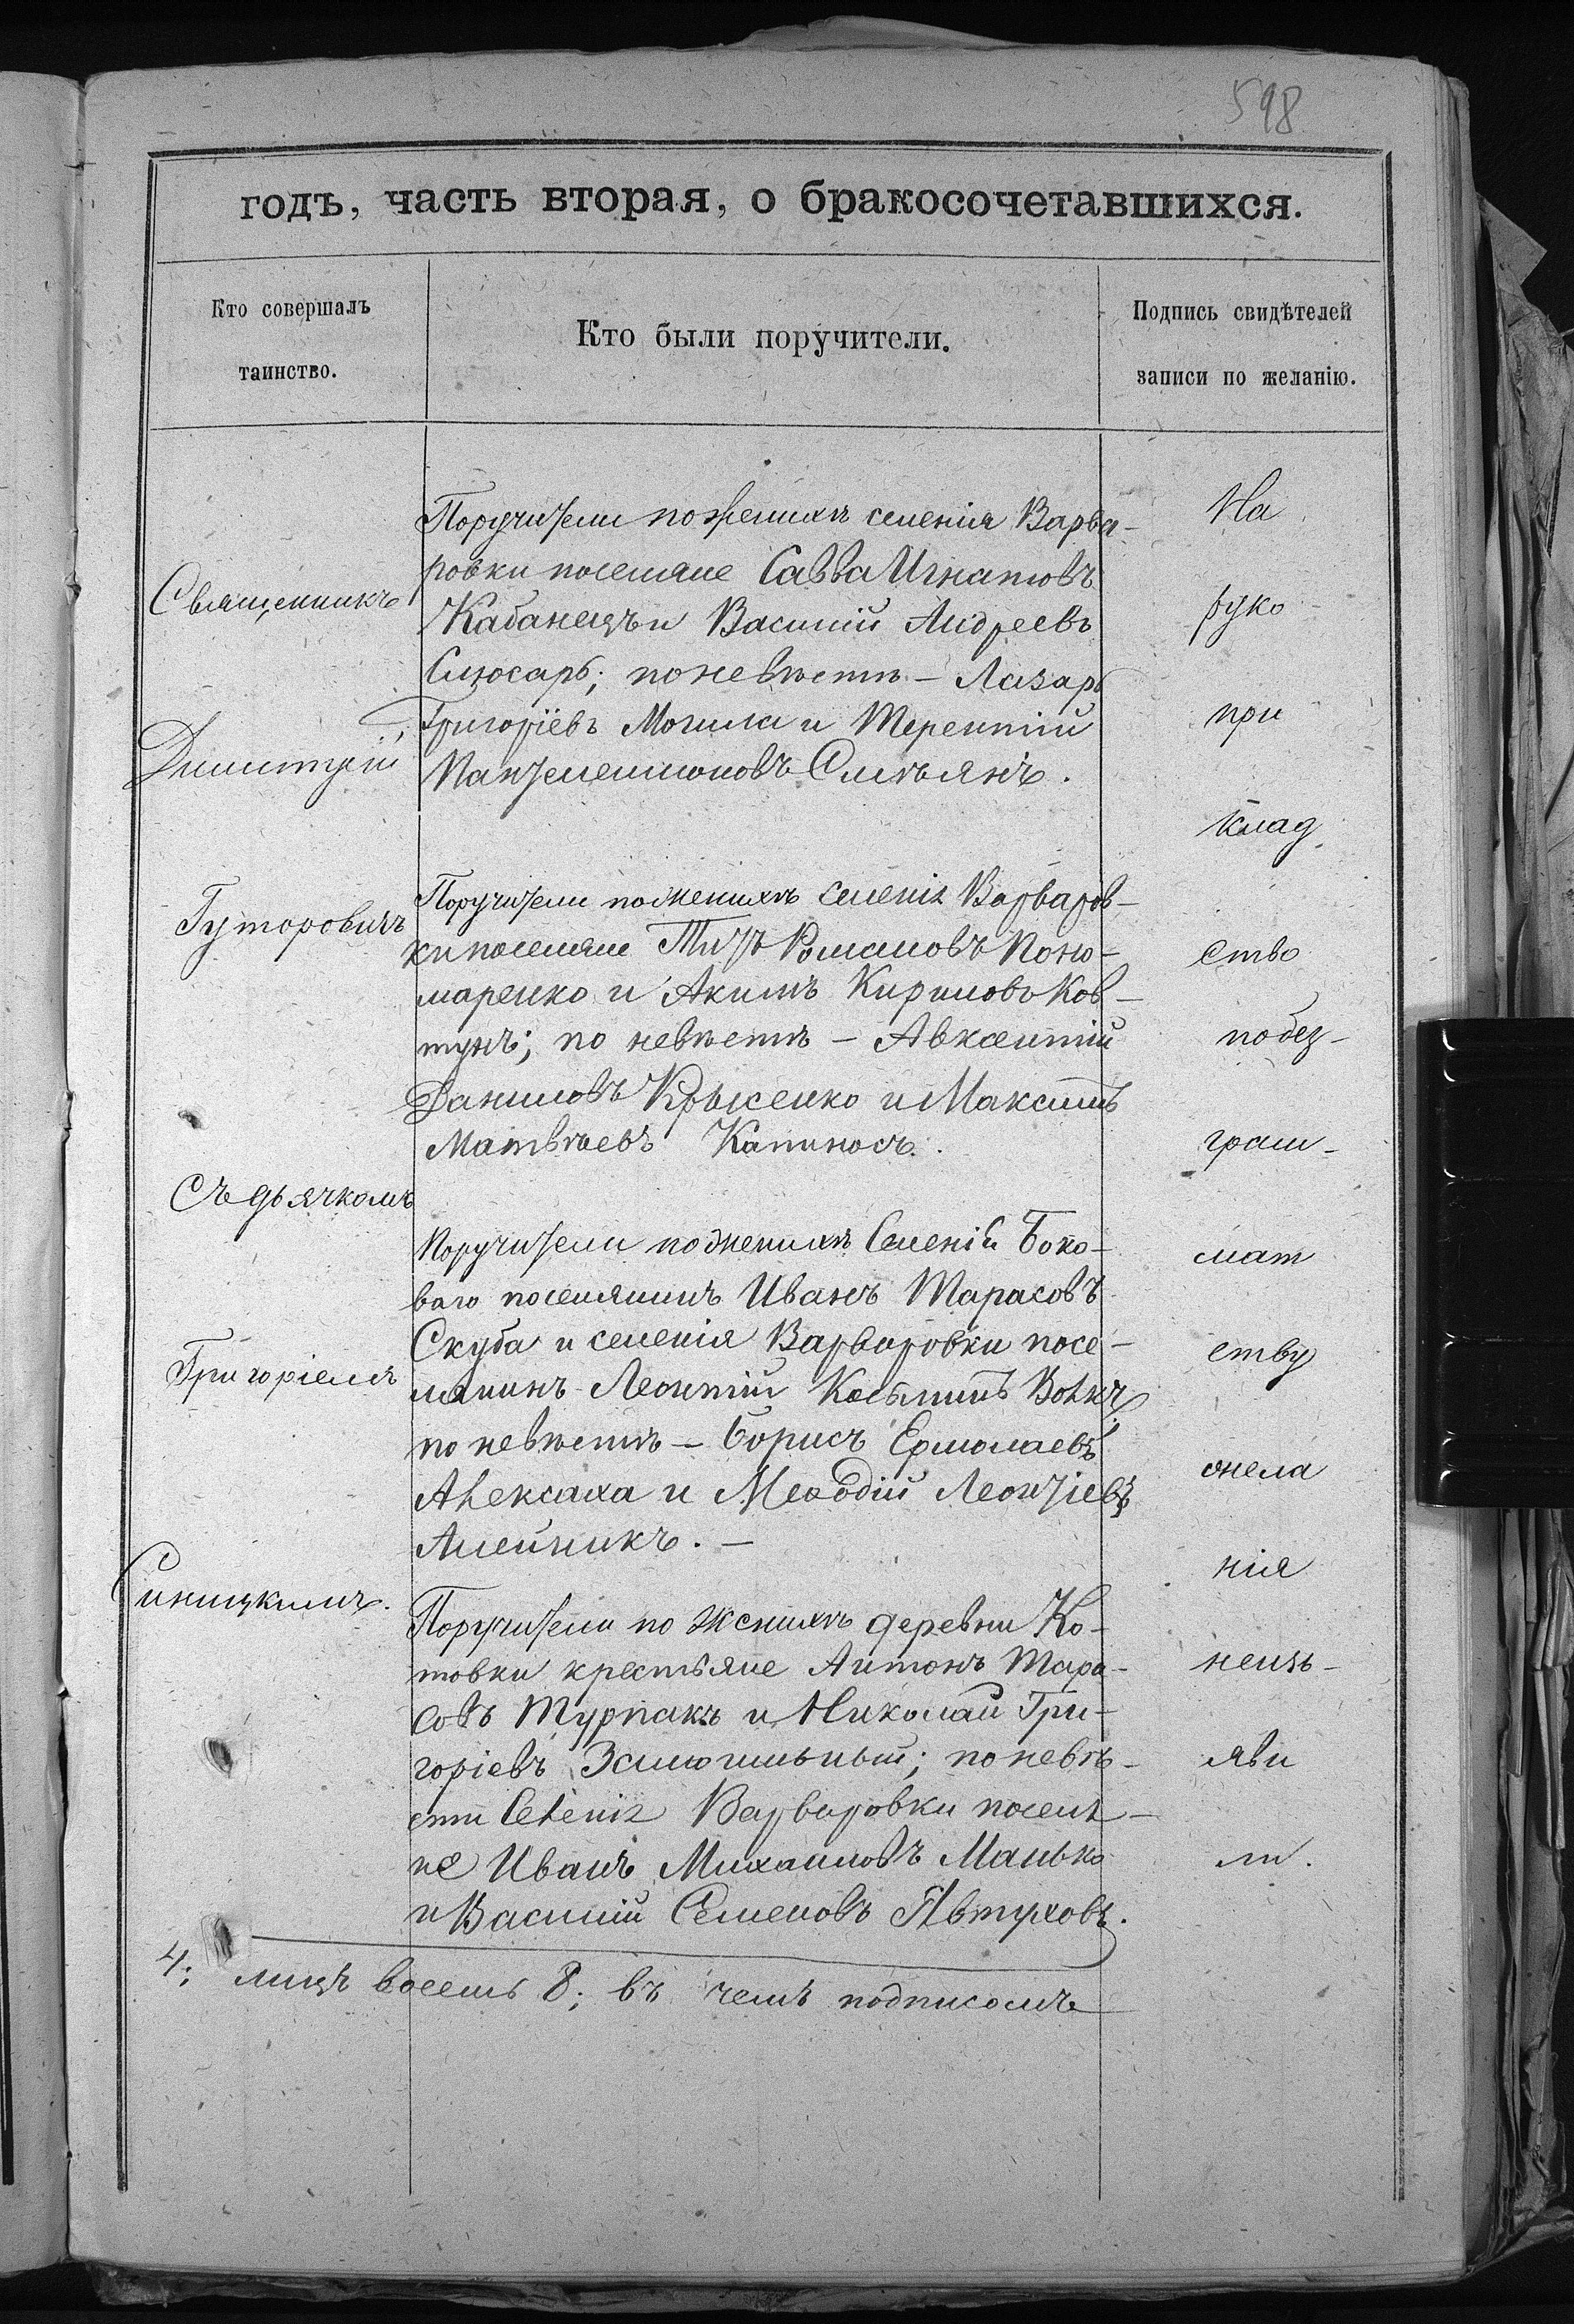 598
годъ, часть вторая, о бракосочетавшихся.
Кто совершалъ
таинство.
Кто были поручители.
Подпись свидѣтелей
записи по желанію.
Священникъ
Димитрій
Гуторовичъ
Съ дьячкомъ
Григоріемъ
Синицкимъ.
Поручители по женихѣ селенія Варва-
ровки поселяне Савва Игнатовъ
Кабанецъ и Василій Андреевъ
Слюсарь; по невѣстѣ – Лазарь
Григоріевъ Могила и Терентій
Пантелеимоновъ Смѣянъ.
Поручители по женихѣ селенія Варваров-
ки поселяне Титъ Романовъ Поно-
маренко и Акимъ Кириловъ Ков-
тунъ; по невѣстѣ – Авксентій
Даниловъ Крысенко и Максимъ
Матвѣевъ Капиносъ.
Поручители по женихѣ Селенія Боко-
ваго поселянинъ Иванъ Тарасовъ
Скуба и селенія Варваровки посе-
лянинъ Леонтій Косьминъ Вовкъ;
по невѣстѣ – Борисъ Ермолаевъ
Алексаха и Меѳодій Леонтіевъ
Алейникъ. –
Поручители по женихѣ деревни Ко-
товки крестьяне Антонъ Тара-
совъ Турпакъ и Николай Гри-
горіевъ; по невѣ-
стѣ Селенія Варваровки поселя-
не Иванъ Михаиловъ Манько
и Василій Семеновъ Автуховъ.
4; лицъ восемь 8; въ чемъ подписомъ
На
руко
при
клад
ство
по без-
грам-
мат
ству
онела
нія
неизъ-
яви
ли.